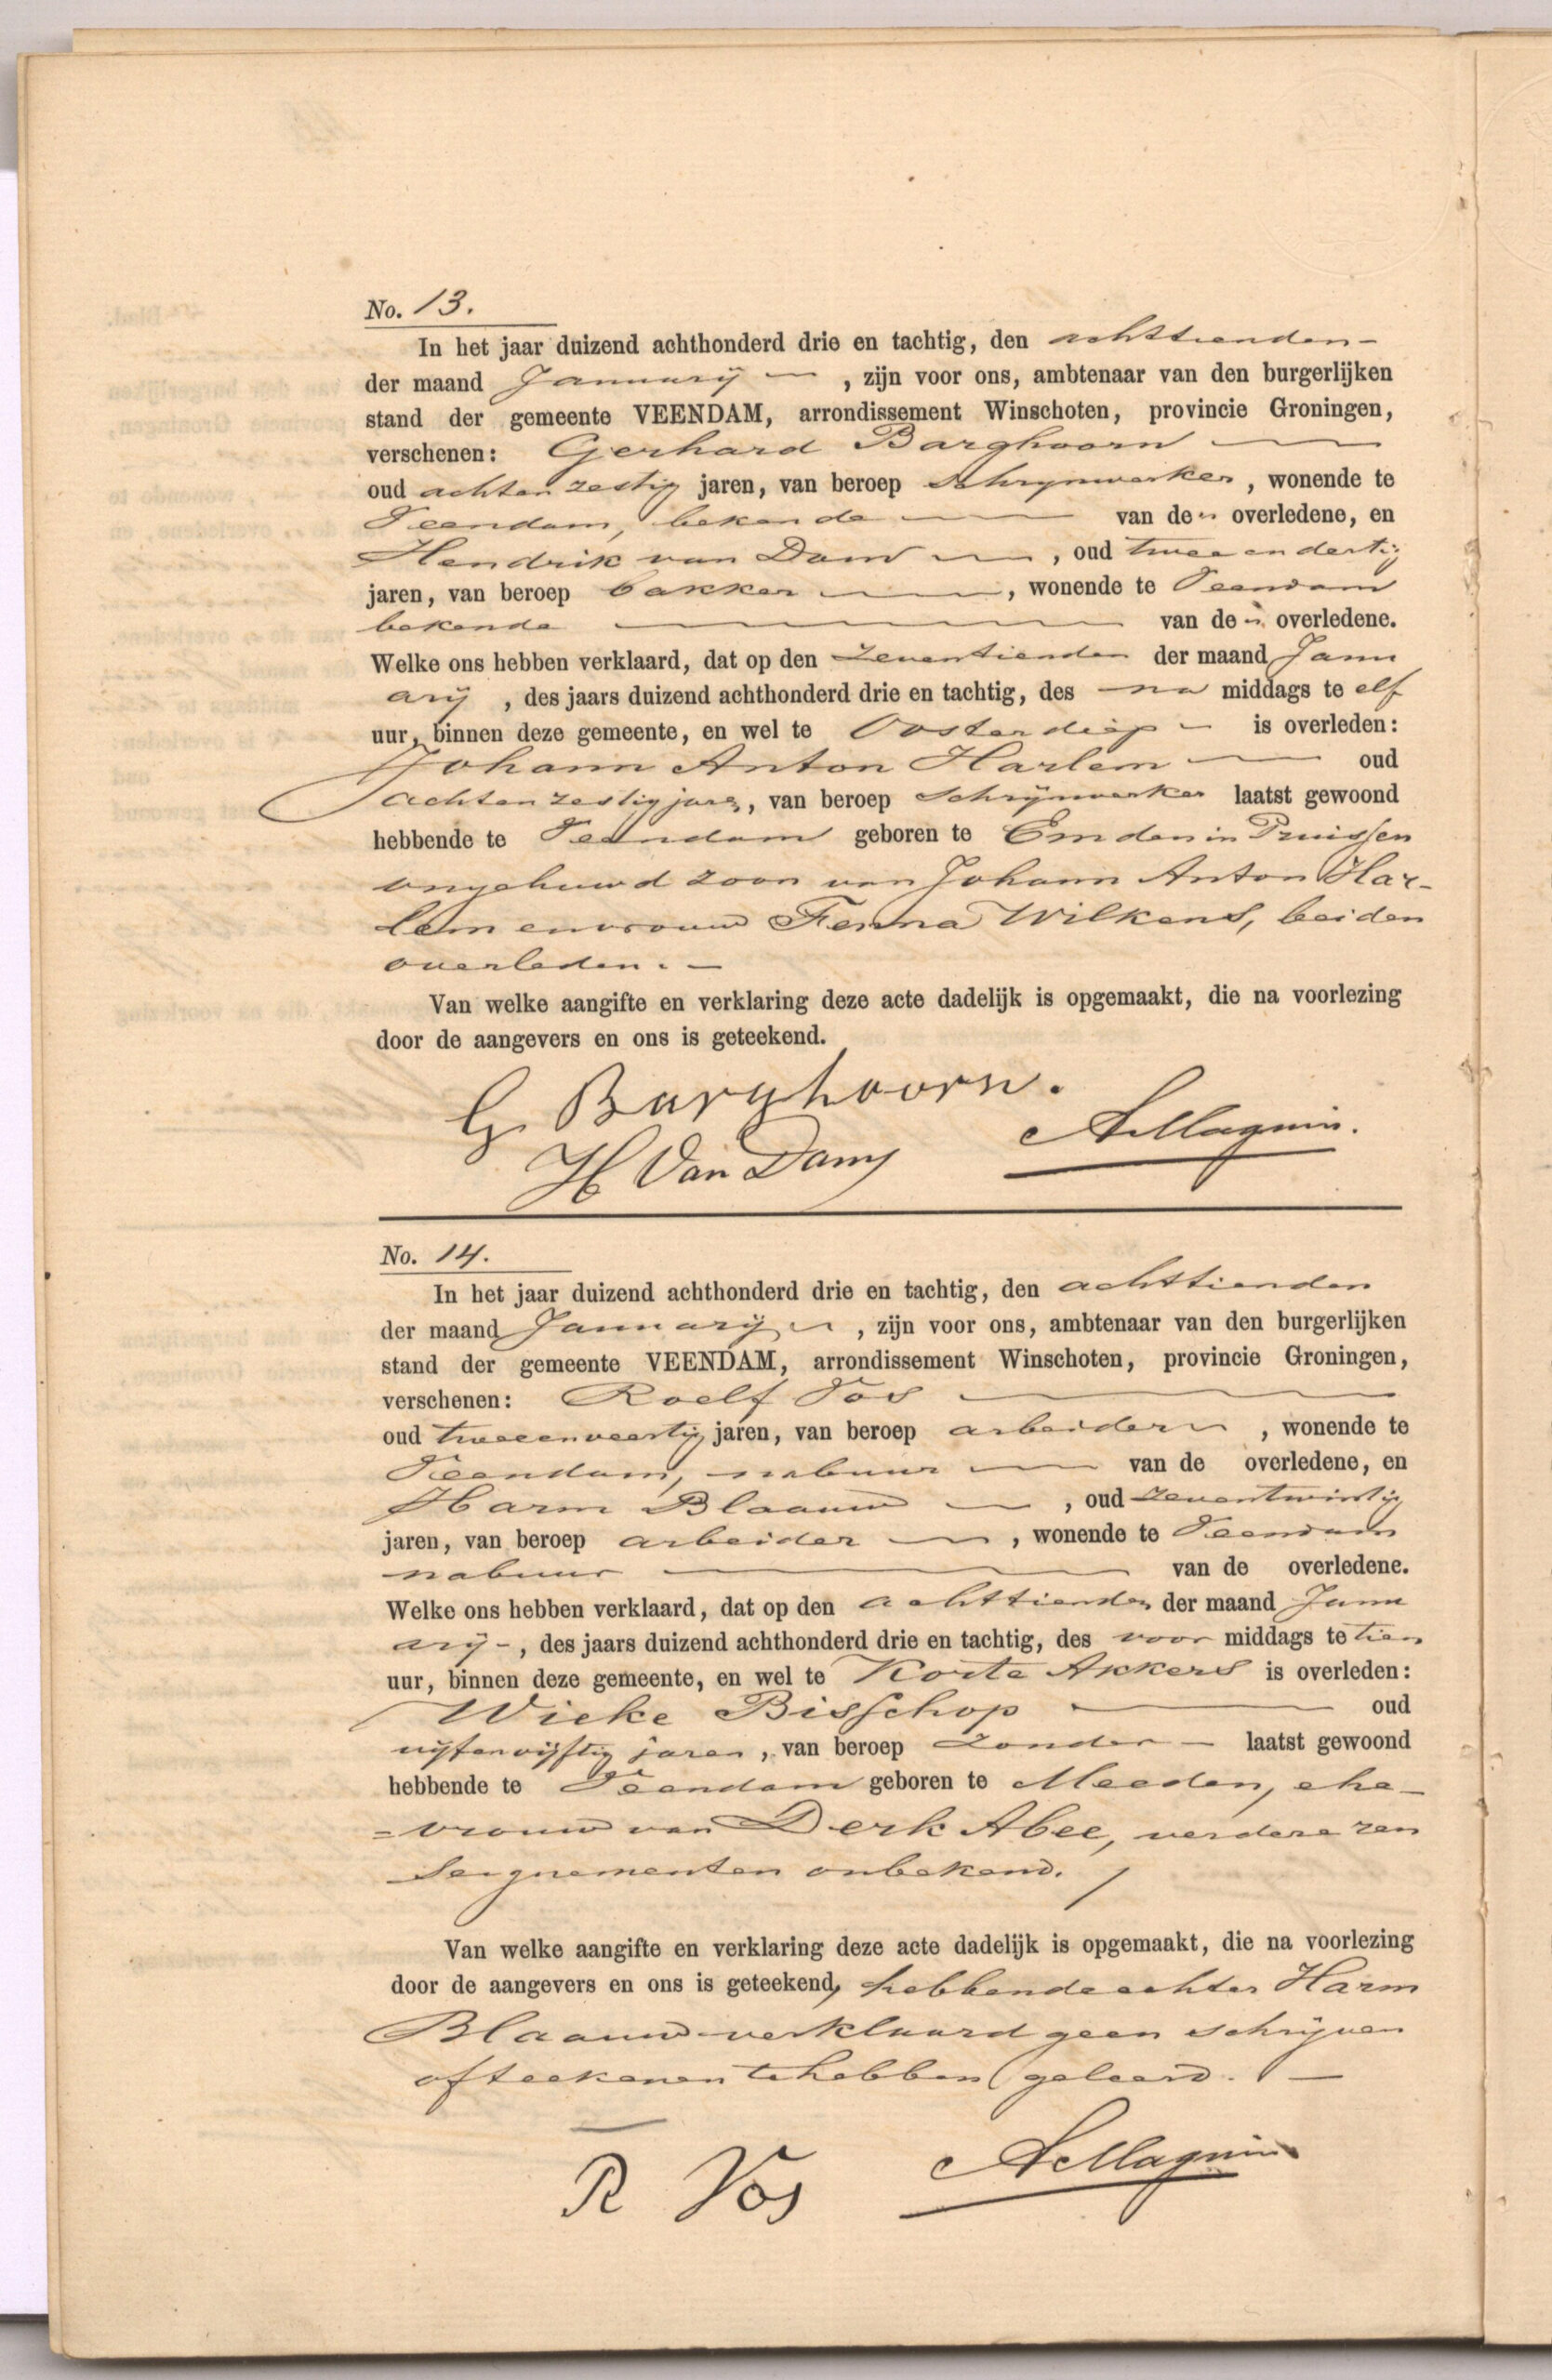 No. 13.
In het jaar duizend achthonderd drie en tachtig, den achttienden
der maand January, zijn voor ons, ambtenaar van den burgerlijken
stand der gemeente VEENDAM, arrondissement Winschoten, provincie Groningen,
verschenen: Gerhard Barghoorn
oud achtenzestig jaren, van beroep Schrijnwerker, wonende te
Veendam, bekende van den overledene, en
Hendrik van Dam, oud twee en dertig
jaren, van beroep bakker, wonende te Veendam
bekende van den overledene.
Welke ons hebben verklaard, dat op den zeventienden der maand Janu
ary, des jaars duizend achthonderd drie en tachtig, des na middags te elf
uur, binnen deze gemeente, en wel te Oosterdiep is overleden:
Johann Anton Harlem oud
achtenzestig jaren, van beroep Schrijnwerker laatst gewoond
hebbende te Veendam geboren te Emden in Pruissen
ongehuwd zoon van Johann Anton Har-
lem en vrouw Fenna Wilkens, beiden
overleden.
Van welke aangifte en verklaring deze acte dadelijk is opgemaakt, die na voorlezing
door de aangevers en ons is geteekend.
G. Barghoorn.
H Van Dam
No. 14.
In het jaar duizend achthonderd drie en tachtig, den achttienden
der maand January, zijn voor ons, ambtenaar van den burgerlijken
stand der gemeente VEENDAM, arrondissement Winschoten, provincie Groningen,
verschenen: Roelf Vos
oud tweeenveertig jaren, van beroep arbeider, wonende te
Veendam, nabuur van de overledene, en
Harm Blaauw, oud zeventwintig
jaren, van beroep arbeider, wonende te Veendam
nabuur van de overledene.
Welke ons hebben verklaard, dat op den achttienden der maand Janu
ary, des jaars duizend achthonderd drie en tachtig, des voor middags te tien
uur, binnen deze gemeente, en wel te Korte Akkers is overleden:
Wieke Bisschop oud
vijfenvijftig jaren, van beroep zonder laatst gewoond
hebbende te Veendam geboren te Meeden, ehe-
=vrouw van Derk Abee, verdere ren
seignementen onbekend.
Van welke aangifte en verklaring deze acte dadelijk is opgemaakt, die na voorlezing
door de aangevers en ons is geteekend, hebbende echter Harm
Blaauw verklaard geen schrijven
of teekenen te hebben geleerd.
R Vos